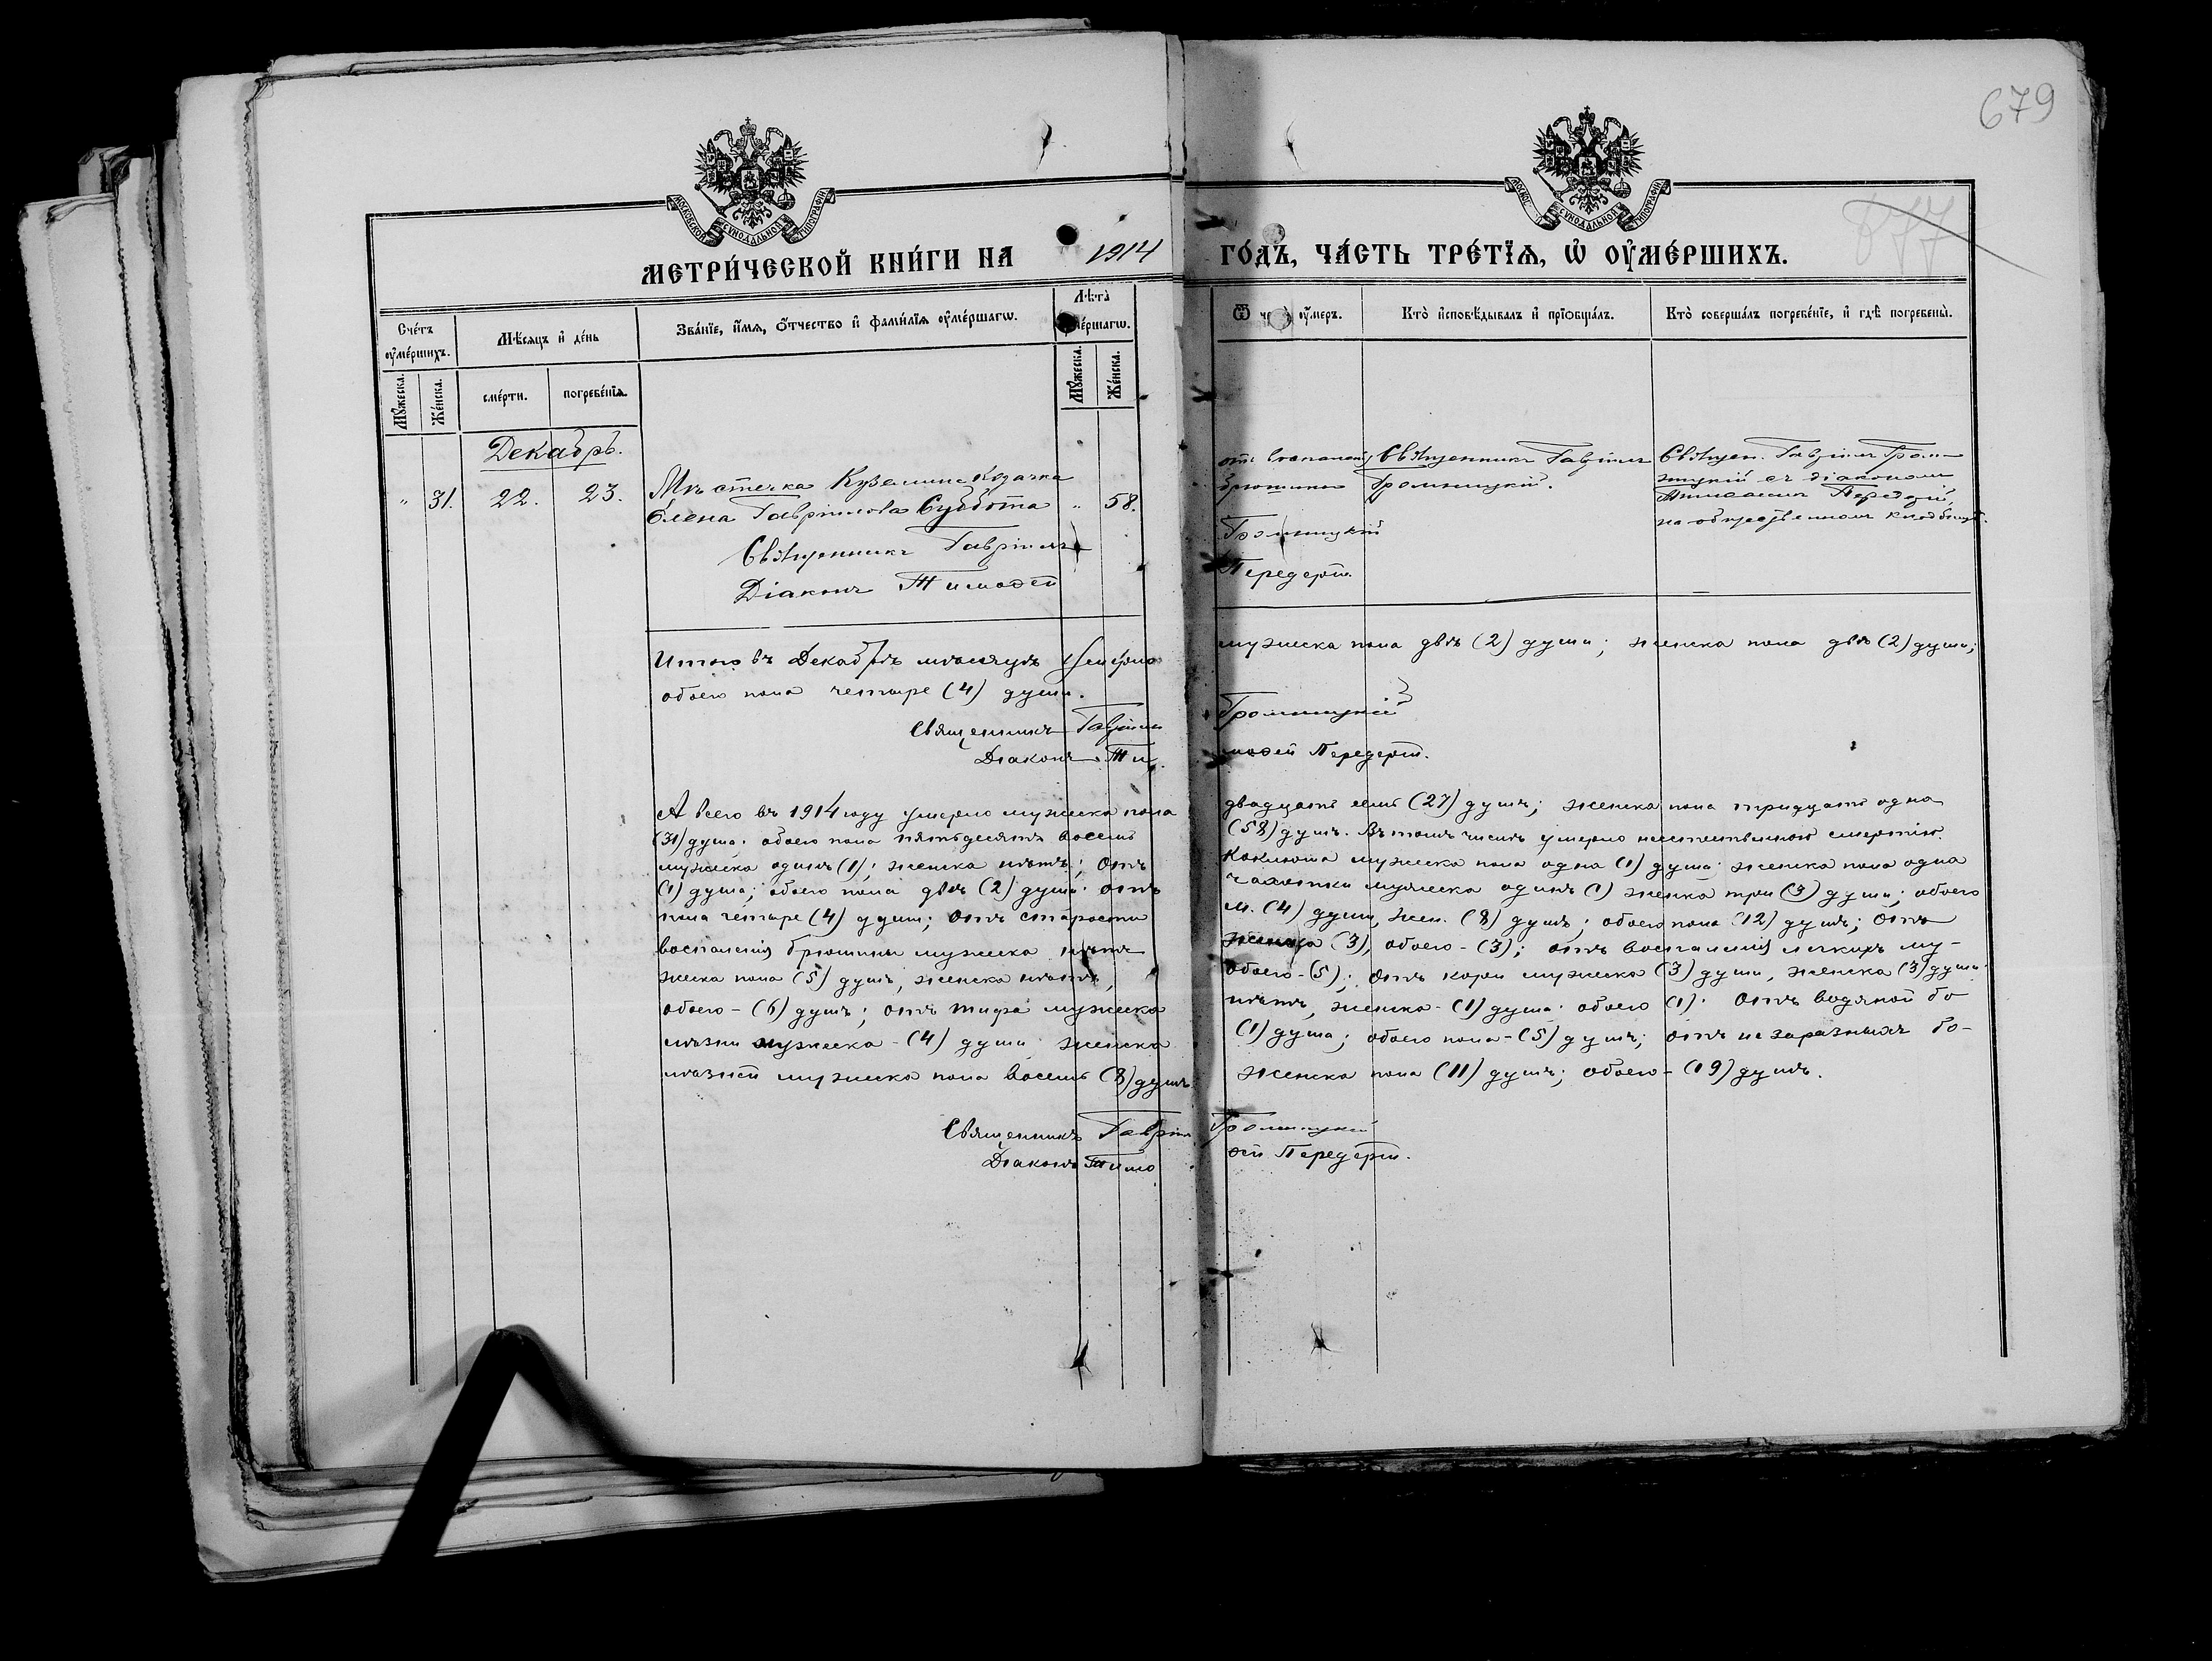 679
877
МОСКОВСКОЙ СѴНОДАЛЬНОЙ ТИПОГРАФІИ
МОСКОВ СѴНОДАЛЬНОЙ ТИПОГРАФІИ
МЕТРИ́ЧЕСКОЙ КНИ́ГИ НА 1914 ГО́ДЪ, ЧА́СТЬ ТРЕ́ТЇѦ, Ѡ҆ ОУ҆МЕ́РШИХЪ.
Сче́тъ оу҆ме́ршихъ.
Мꙋ́жеска.
Же́нска.
Мѣ́сѧцъ и҆ де́нь
сме́рти.
погребе́нїѧ.
Зва́нїе, и҆́мѧ, ѻ҆́тчество и҆ фами́лїѧ оу҆ме́ршагѡ.
Лѣ́та оу҆ме́ршагѡ.
Мꙋ́жеска.
Же́нска.
Ѿ чегѡ̀ оу҆́меръ.
Кто̀ и҆сповѣ́дывалъ и҆ прїѡбща́лъ.
Кто̀ соверша́лъ погребе́нїе, и҆ гдѣ̀ погребены̀.
Декабрь.
" 31. 22. 23. Мѣстечка Куземина Козачка
Елена Гавріилова Суббота " 58.
отъ воспаленія брюшины
Священникъ Гавріилъ Громницкій.
Священ. Гавріилъ Гром-
ницкій съ діакономъ
Тимофеемъ Передерій,
на общественномъ кладбищѣ.
Священникъ Гавріилъ Громницкій
Діаконъ Тимофей Передерій.
Итого въ Декабрѣ мѣсяцѣ умерло мужеска пола двѣ (2) души; женска пола двѣ (2) души;
обоего пола четыре (4) души.
Священникъ Гавріилъ Громницкій
Діаконъ Тимофей Передерій.
А всего въ 1914 году умерло мужеска пола двадцать семь (27) душъ; женска пола тридцать одна
(31) душа; обоего пола пятьдесятъ восемь (58) душъ. Въ томъ числѣ умерло неестественной смертію
мужеска одинъ (1); женска нѣтъ; отъ коклюша мужеска пола одна (1) душа; женска пола одна
(1) душа; обоего пола двѣ (2) души; отъ чахотки мужеска одинъ (1) женска три (3) души; обоего
пола четыре (4) души; отъ старости м. (4) души, жен. (8) душъ; обоего пола (12) душъ; отъ
воспаленія брюшины мужеска нѣтъ женска (3), обоего - (3); отъ воспаленія легкихъ му-
жеска пола (5) душъ, женска нѣтъ, обоего - (5); отъ кори мужеска (3) души, женска (3) души
обоего - (6) душъ; отъ тифа мужеска нѣтъ, женска - (1) душа; обоего (1). Отъ водяной бо
лѣзни мужеска - (4) души женска (1) душа; обоего пола - (5) душъ; отъ незаразныхъ бо-
лѣзней мужеска пола восемь (8) душъ женска пола (11) душъ; обоего - (19) душъ.
Священникъ Гавріилъ Громницкій
Діаконъ Тимофей Передерій.